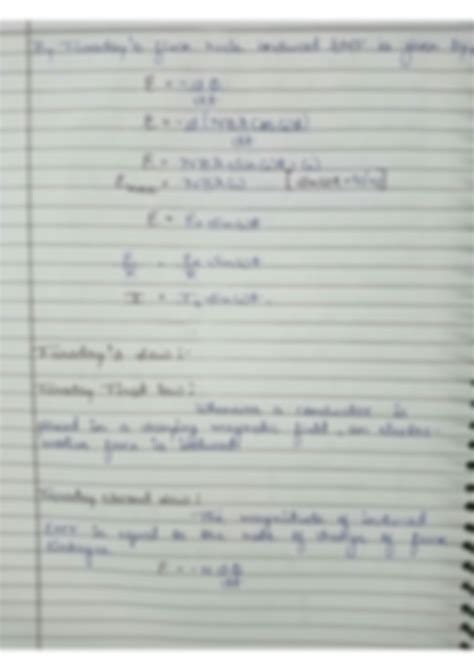 By Faraday's flux rule induced EMF is given by,
E = - dΦ/dt
E = - d(NBA cos ωt)/dt
E = NBA sin ωt · ω
E = NBA ω
E = E₀ sin ωt
= sin ωt
I = I₀ sin ωt.
Faraday's Law :-
Faraday First law :
Whenever a conductor is
placed in a varying magnetic field, an electro-
motive force is induced.
Faraday second law :
The magnitude of induced
EMF is equal to the rate of change of flux
E = - N dΦ/dt